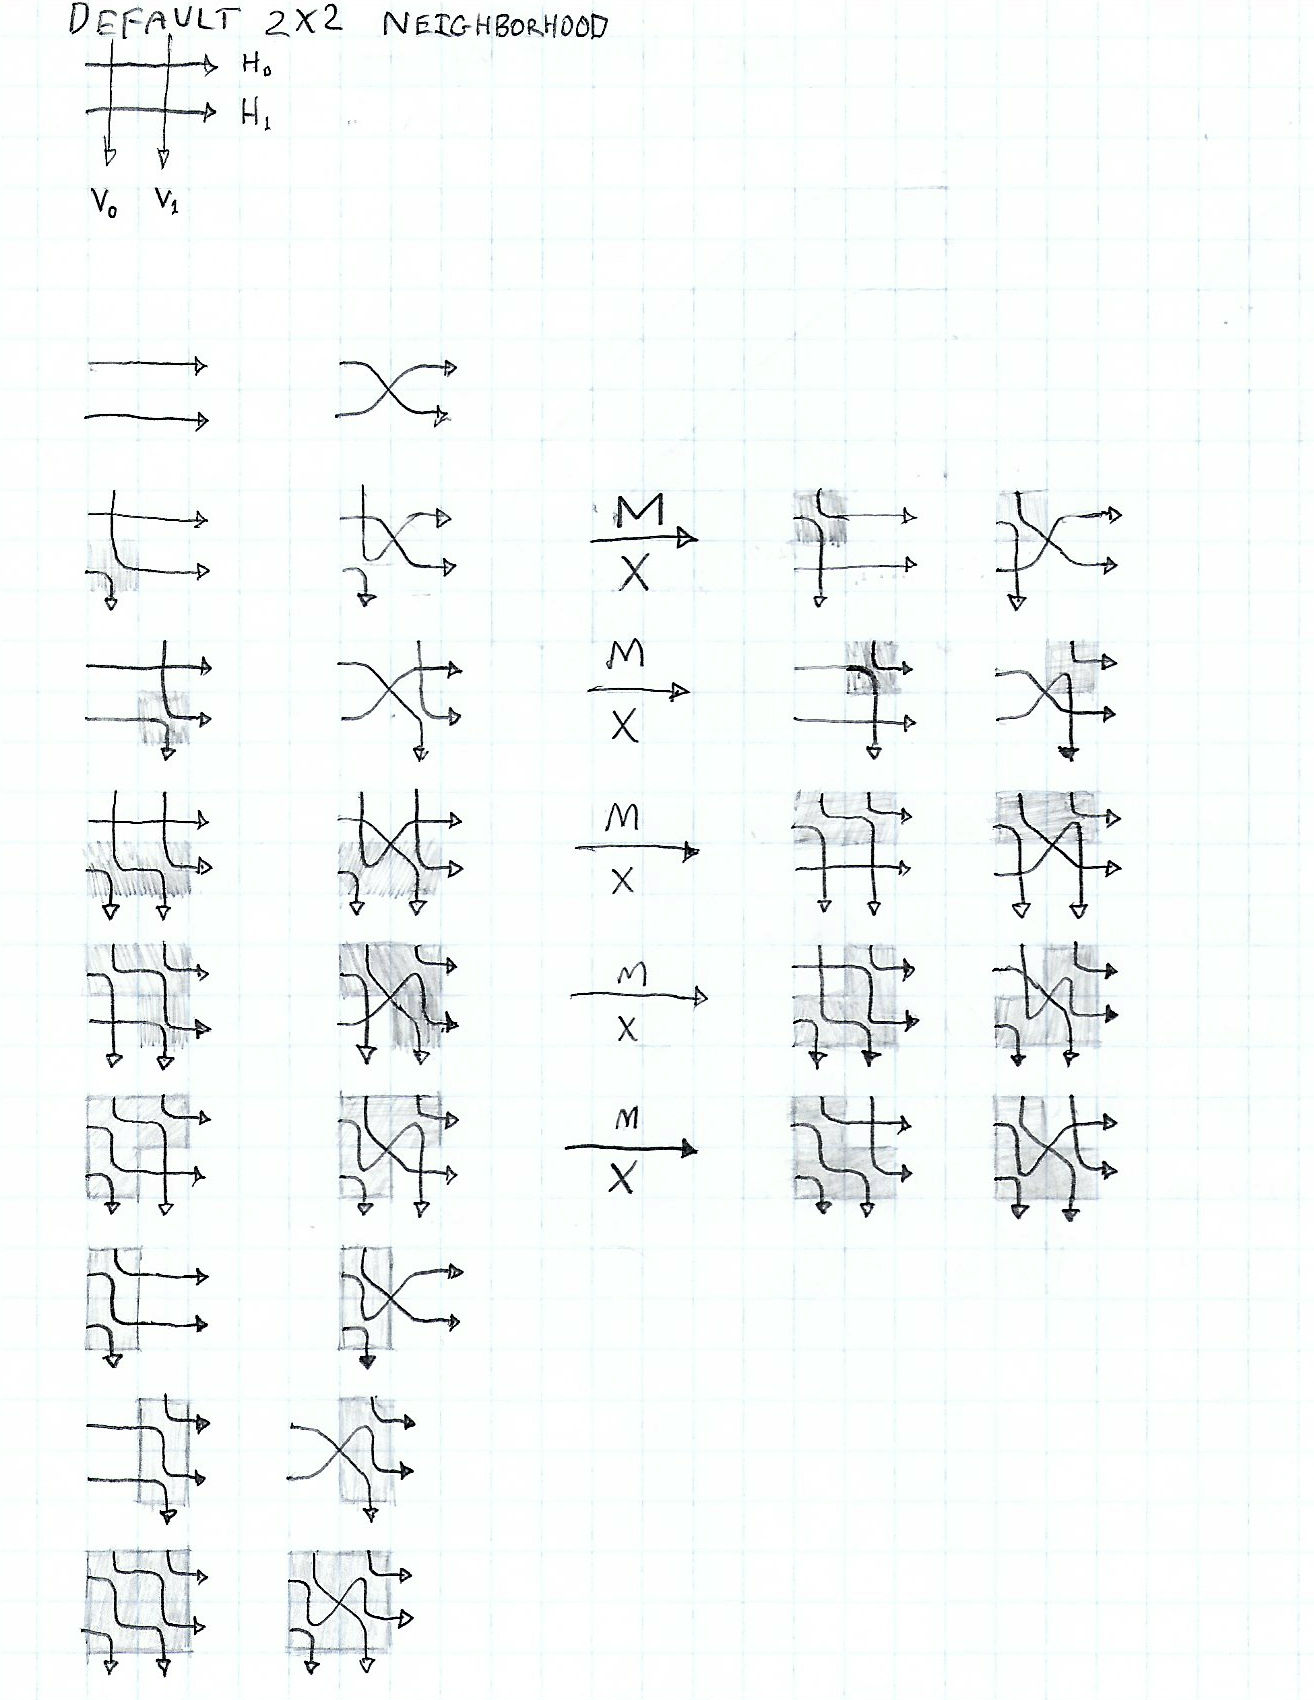 DEFAULT 2X2 NEIGHBORHOOD
H₀
H₁
V₀ V₁
M
X
M
X
M
X
M
X
M
X